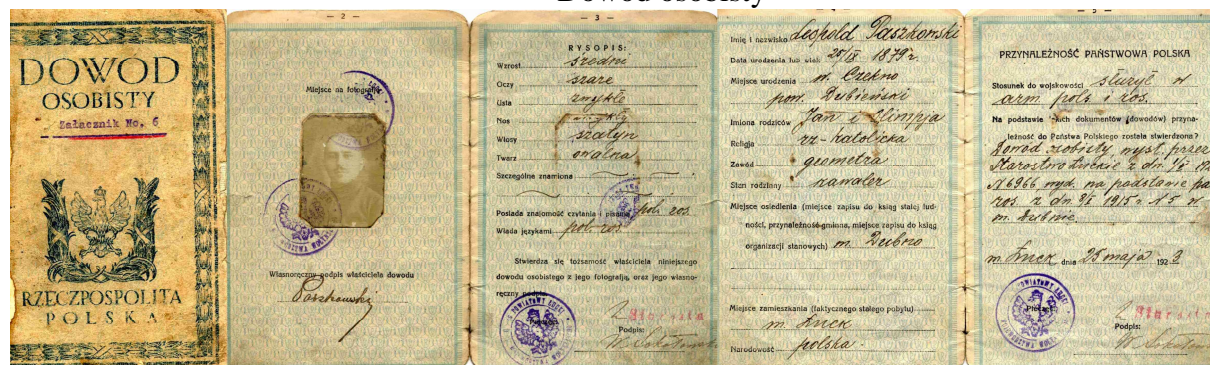 Dowód osobisty
DOWÓD
OSOBISTY
Załacznik No. 6
RZECZPOSPOLITA
POLSKA
— 2 —
Miejsce na fotografję
Własnoręczny podpis właściciela dowodu
Paszkowski
— 3 —
RYSOPIS:
Wzrost średni
Oczy szare
Usta zwykłe
Nos zwykły
Włosy szatyn
Twarz owalna
Szczególne znamiona
Posiada znajomość czytania i pisania pol. ros.
Włada językami pol. ros.
Stwierdza się tożsamość właściciela niniejszego
dowodu osobistego z jego fotografją, oraz jego własno-
ręczny podpis
Starosta
Podpis:
Imię i nazwisko Leopold Paszkowski
Data urodzenia lub wiek 1879 r.
Miejsce urodzenia w. Czekno
pow. Dubieński
Imiona rodziców Jan i Olimpja
Religja rz-katolicka
Zawód geometra
Stan rodzinny kawaler
Miejsce osiedlenia (miejsce zapisu do ksiąg stałej lud-
ności, przynależność gminna, miejsce zapisu do ksiąg
organizacji stanowych) m. Dubno
Miejsce zamieszkania (faktycznego stałego pobytu)
m. Łuck
Narodowość polska
— 5 —
PRZYNALEŻNOŚĆ PAŃSTWOWA POLSKA
Stosunek do wojskowości służył w
arm. pols i ros.
Na podstawie jakich dokumentów (dowodów) przyna-
leżność do Państwa Polskiego została stwierdzona?
Dowód osobisty wyst. przez
Starostwo Łuckie z dn.
N 6966 wyd. na podstawie
ros. z dn. 1915 r. N 5 w
m. Dubnie
m. Łuck dnia 25 maja 1923
Starosta
Podpis: